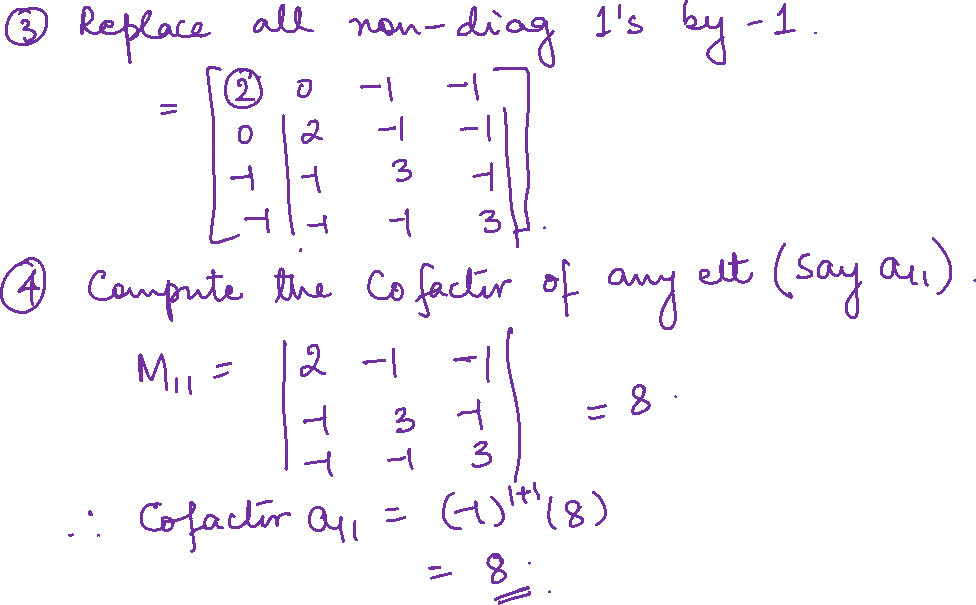 ③ Replace all non-diag 1's by -1.
= [ 2 0 -1 -1
0 2 -1 -1
-1 -1 3 -1
-1 -1 -1 3 ].
④ Compute the Cofactor of any elt (say a₁₁).
M₁₁ = | 2 -1 -1
-1 3 -1 | = 8.
-1 -1 3
∴ Cofactor a₁₁ = (-1)¹⁺¹ (8)
= 8.